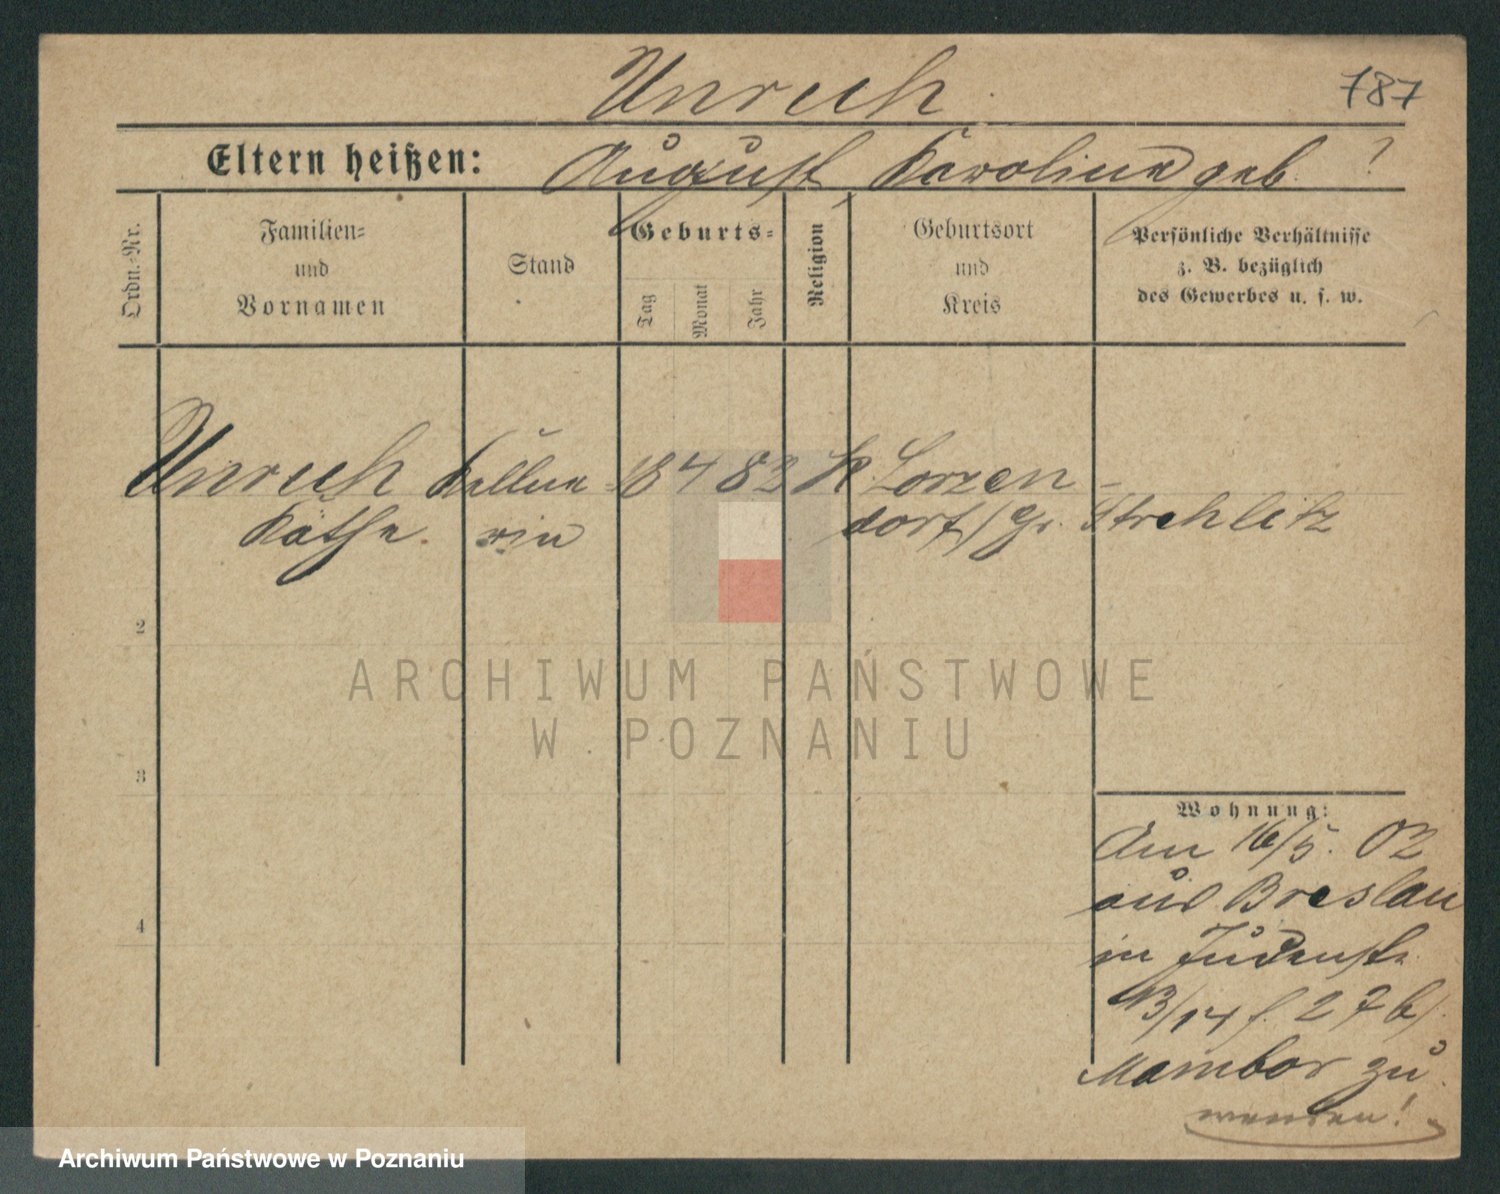 Unruh
787
Eltern heißen: August, Karoline geb. ?
Ordn.-Nr.
Familien-
und
Vornamen
Stand
Geburts-
Tag
Monat
Jahr
Religion
Geburtsort
und
Kreis
Persönliche Verhältnisse
z. B. bezüglich
des Gewerbes u. s. w.
Unruh Kellne 18 4 82 K. Lorzen-
Käthe. rin dorf/Gr. Strehlitz
2
3
4
Wohnung:
Am 16/5. 02
aus Breslau
in Judenstr.
13/14 f. 27 b/.
Mambor zu
wenden!
ARCHIWUM PAŃSTWOWE
W POZNANIU
Archiwum Państwowe w Poznaniu